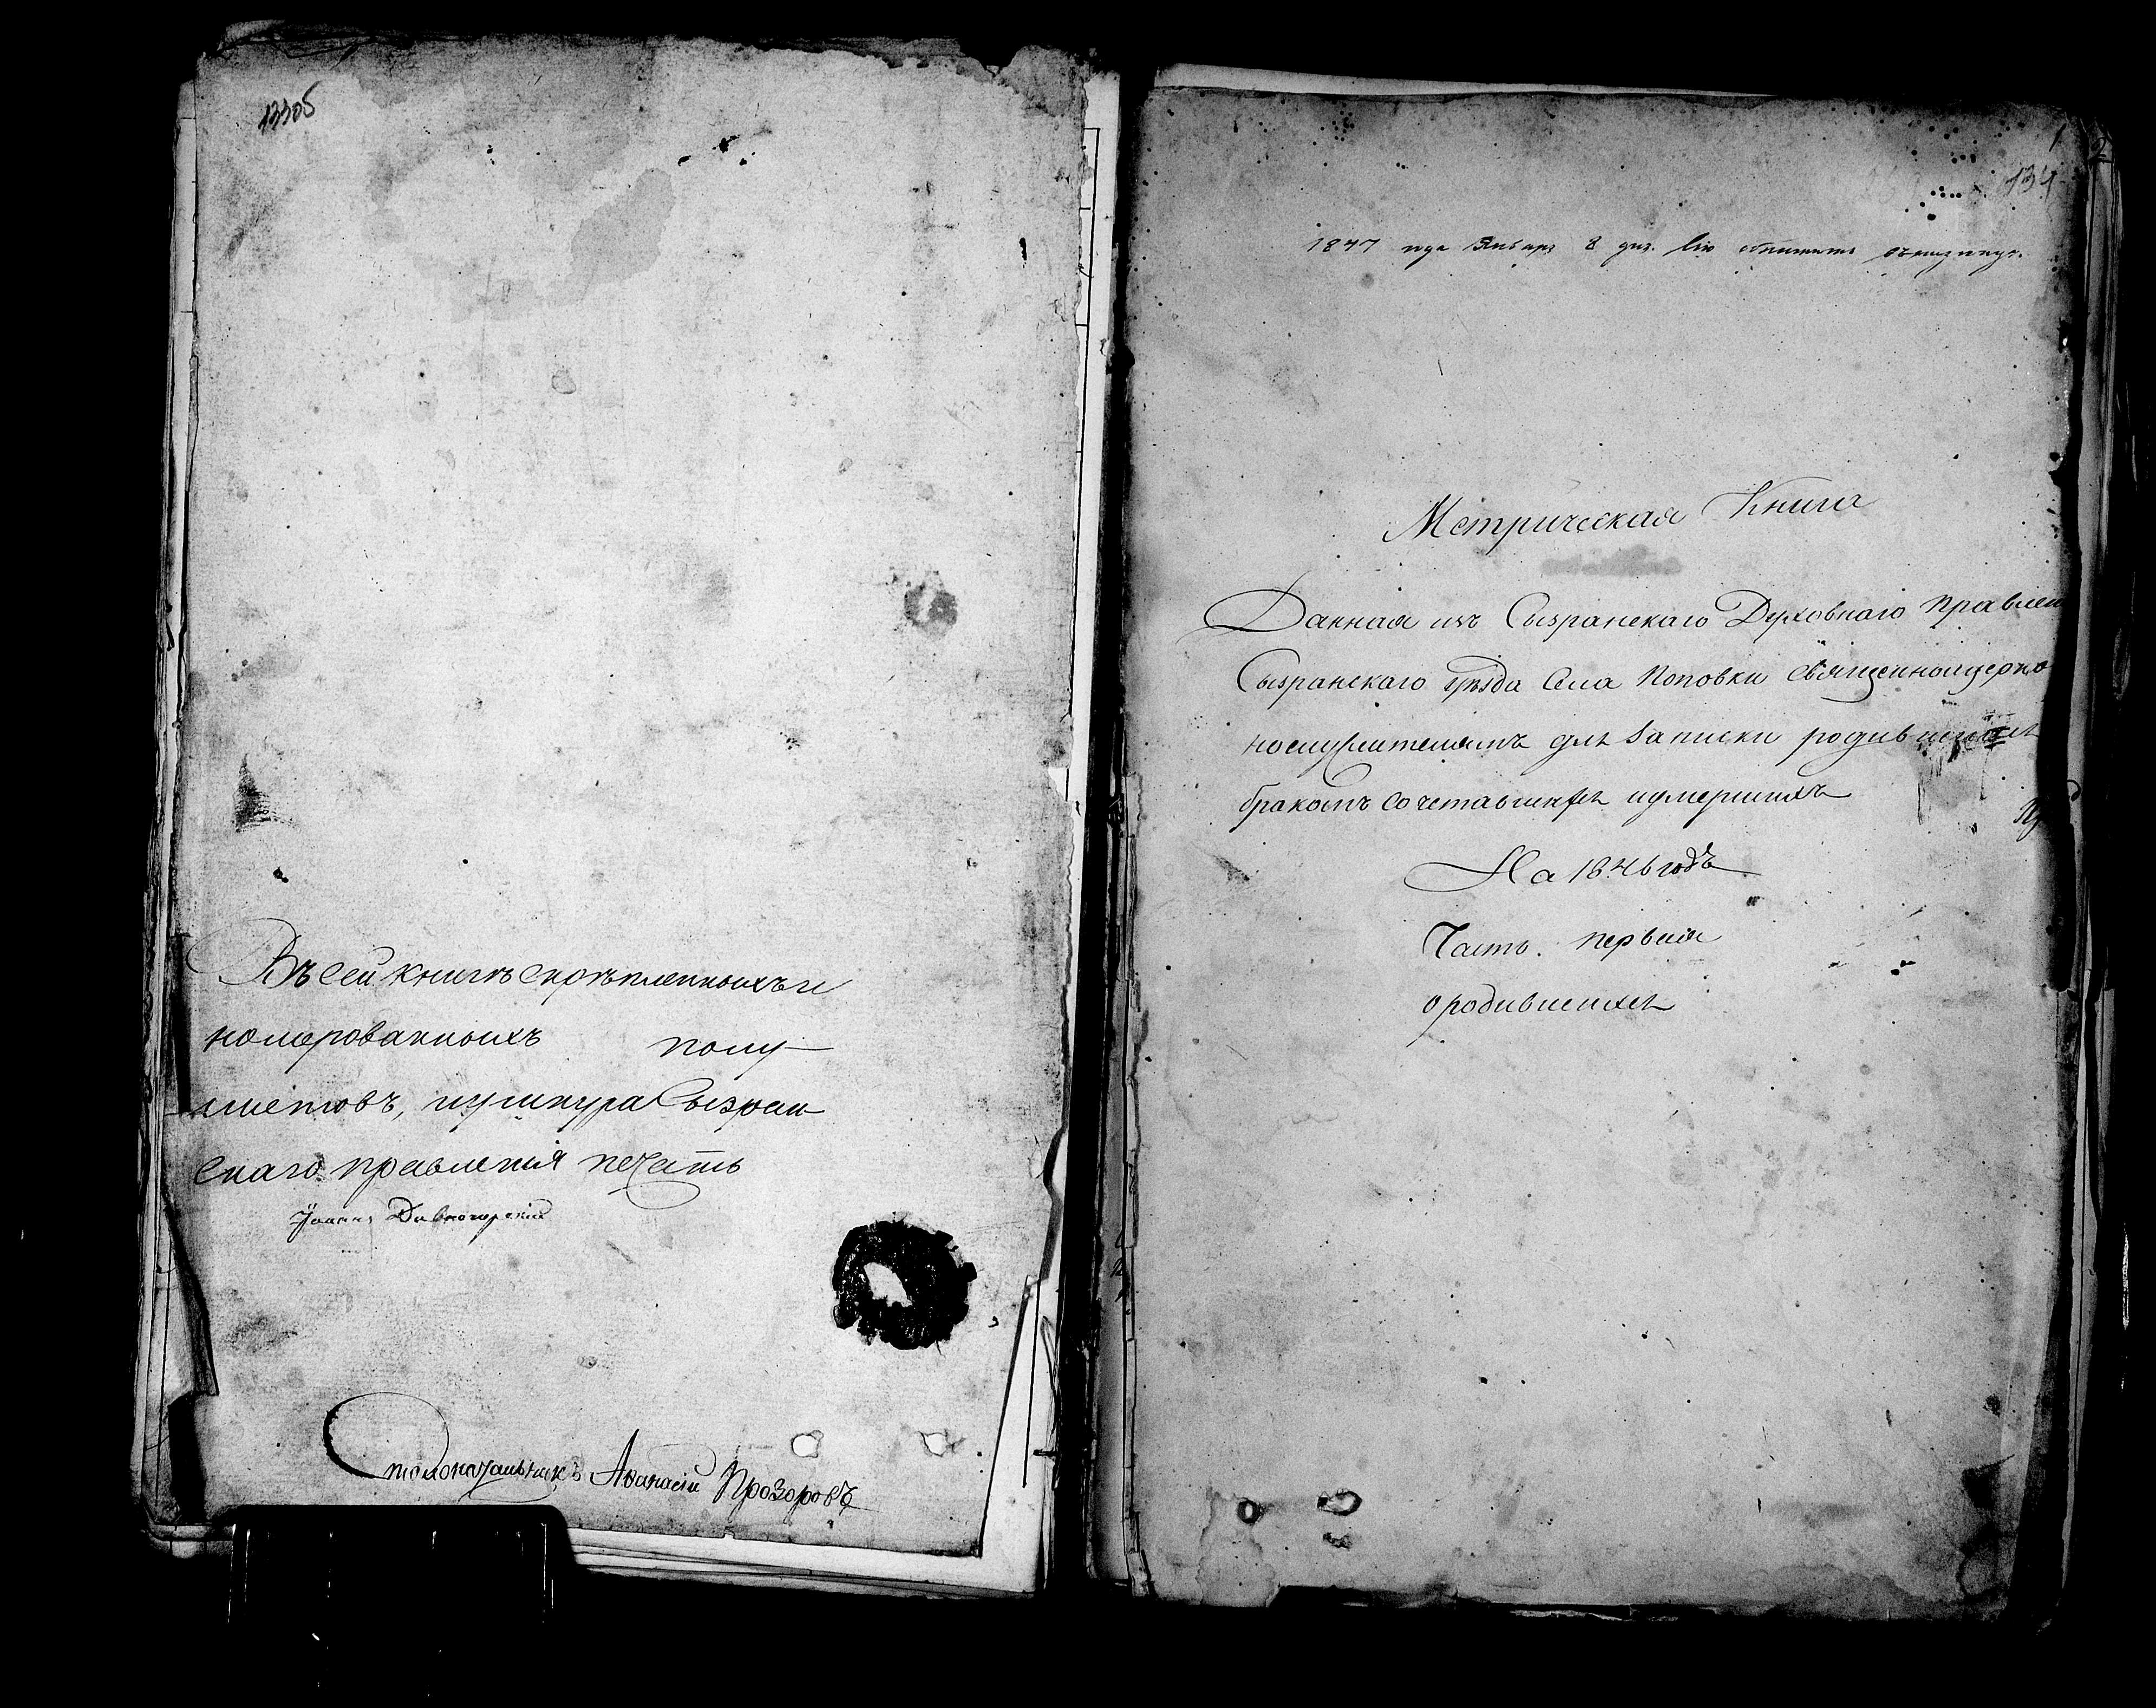 133об
Въ сей книгѣ скрѣпленныхъ и
номерованныхъ полу-
листовъ, и у шнура Сызран-
скаго правленія печать
Іоаннъ Дивногорскій
Столоначальникъ Аѳанасій Прозоровъ
1 2
134
1847 года Января 8 дня. Сію
Метрическая Книга
Данная изъ Сызранскаго Духовнаго Правлен
Сызранскаго уѣзда Села Поповки Священноцерко
нослужителямъ для записки родившихся
бракомъ сочетавшихся и умершихъ
На 1846 годъ
Часть. первая
о родившихся